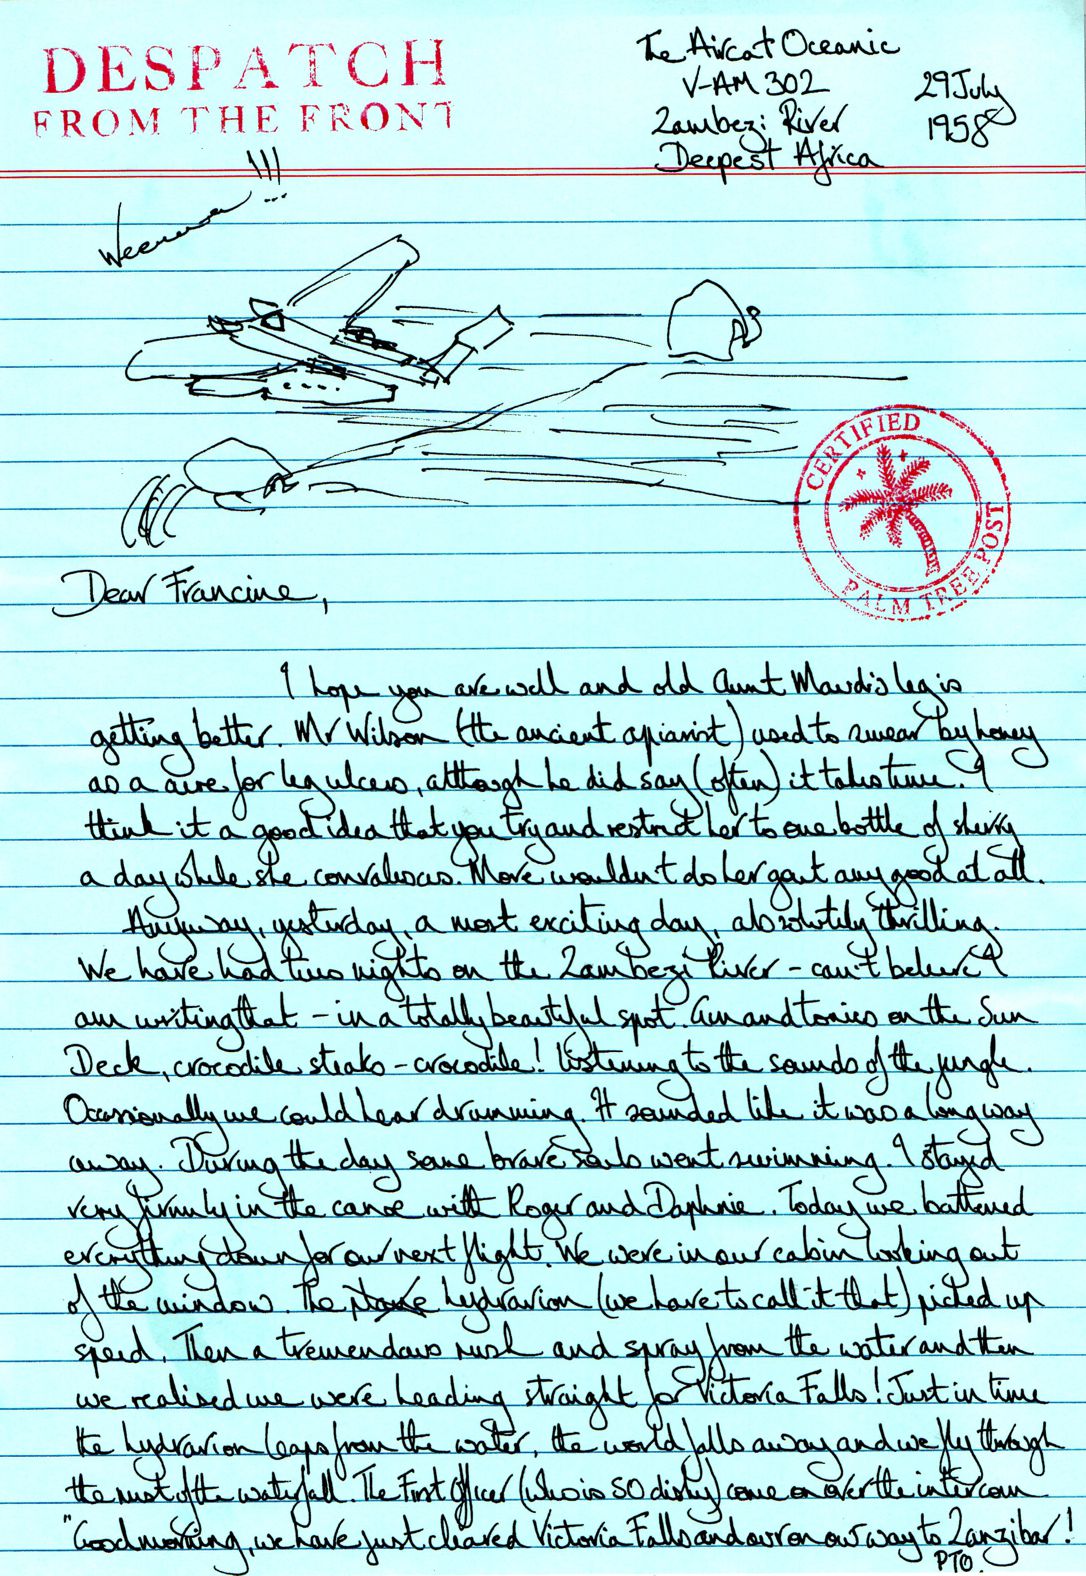 DESPATCH
FROM THE FRONT
The Aircat Oceanic
V-AM 302
Zambezi River
Deepest Africa
29 July
1958
Weeeeeee!!!
CERTIFIED
PALM TREE POST
Dear Francine,
I hope you are well and old Aunt Maud's leg is
getting better. Mr Wilson (the ancient apiarist) used to swear by honey
as a cure for leg ulcers, although he did say (often) it takes time. I
think it a good idea that you try and restrict her to one bottle of sherry
a day while she convalesces. More wouldn't do her gout any good at all.
Anyway, yesterday, a most exciting day, absolutely thrilling.
We have had two nights on the Zambezi River - can't believe I
am writing that - in a totally beautiful spot. Gin and tonics on the Sun
Deck, crocodile steaks - crocodile! Listening to the sounds of the jungle.
Occasionally we could hear drumming. It sounded like it was a long way
away. During the day some brave souls went swimming. I stayed
very firmly in the canoe with Roger and Daphnie. Today we battened
everything down for our next flight. We were in our cabin looking out
of the window. The plane hydravion (we have to call it that) picked up
speed. Then a tremendous rush and spray from the water and then
we realised we were heading straight for Victoria Falls! Just in time
the hydravion leaps from the water, the world falls away and we fly through
the mist of the waterfall. The First Officer (who is SO dishy) come on over the intercom
"Good morning, we have just cleared Victoria Falls and are on our way to Zanzibar!
PTO.